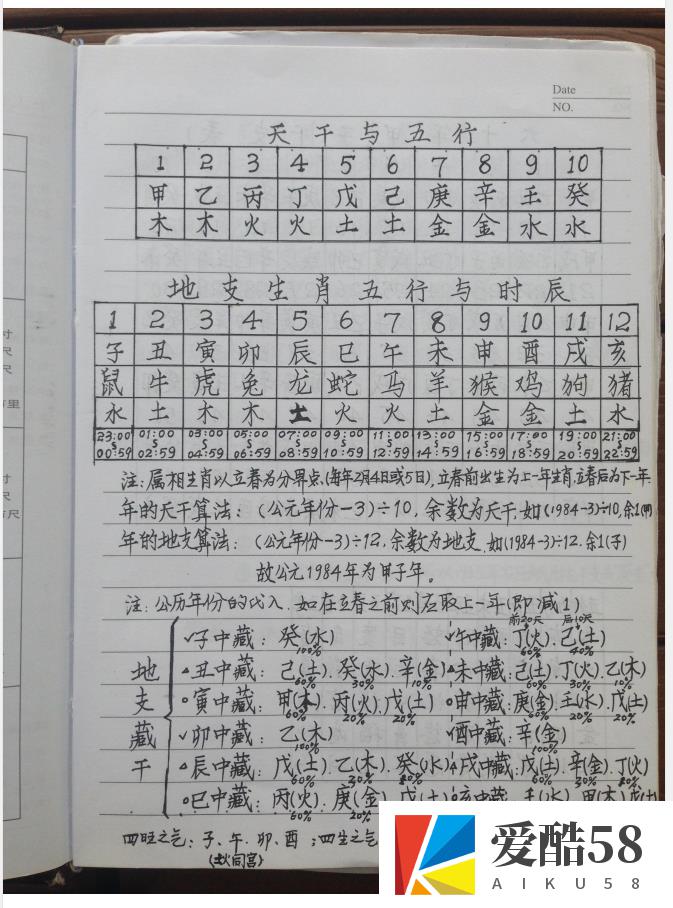 Date
NO.
天干与五行
1 2 3 4 5 6 7 8 9 10
甲 乙 丙 丁 戊 己 庚 辛 壬 癸
木 木 火 火 土 土 金 金 水 水
地支生肖五行与时辰
1 2 3 4 5 6 7 8 9 10 11 12
子 丑 寅 卯 辰 巳 午 未 申 酉 戌 亥
鼠 牛 虎 兔 龙 蛇 马 羊 猴 鸡 狗 猪
水 土 木 木 土 火 火 土 金 金 土 水
23:00 01:00 03:00 05:00 07:00 09:00 11:00 13:00 15:00 17:00 19:00 21:00
00:59 02:59 04:59 06:59 08:59 10:59 12:59 14:59 16:59 18:59 20:59 22:59
注:属相生肖以立春为分界点,(每年2月4日或5日),立春前出生为上一年生肖,立春后为下一年.
年的天干算法:(公元年份-3)÷10,余数为天干.如(1984-3)÷10,余1(甲)
年的地支算法:(公元年份-3)÷12,余数为地支.如(1984-3)÷12.余1(子)
故公元1984年为甲子年。
注:公历年份的代入.如在立春之前则应取上一年(即减1)
前20天 后10天
地支藏干
子中藏:癸(水) 午中藏:丁(火).己(土)
100% 60% 40%
丑中藏:己(土).癸(水).辛(金) 未中藏:己(土).丁(火).乙(木)
60% 30% 10% 60% 30% 10%
寅中藏:甲(木).丙(火).戊(土) 申中藏:庚(金).壬(水).戊(土)
60% 20% 20% 60% 20% 20%
卯中藏:乙(木) 酉中藏:辛(金)
100% 100%
辰中藏:戊(土).乙(木).癸(水) 戌中藏:戊(土).辛(金).丁(火)
60% 30% 60% 30%
巳中藏:丙(火).庚(金).戊(土) 亥中藏:壬(水).甲(木).戊(土)
60% 20%
四旺之气:子、午、卯、酉;四生之气
寸
尺
尺
市里
寸
尺
市尺
爱酷58
AIKU58